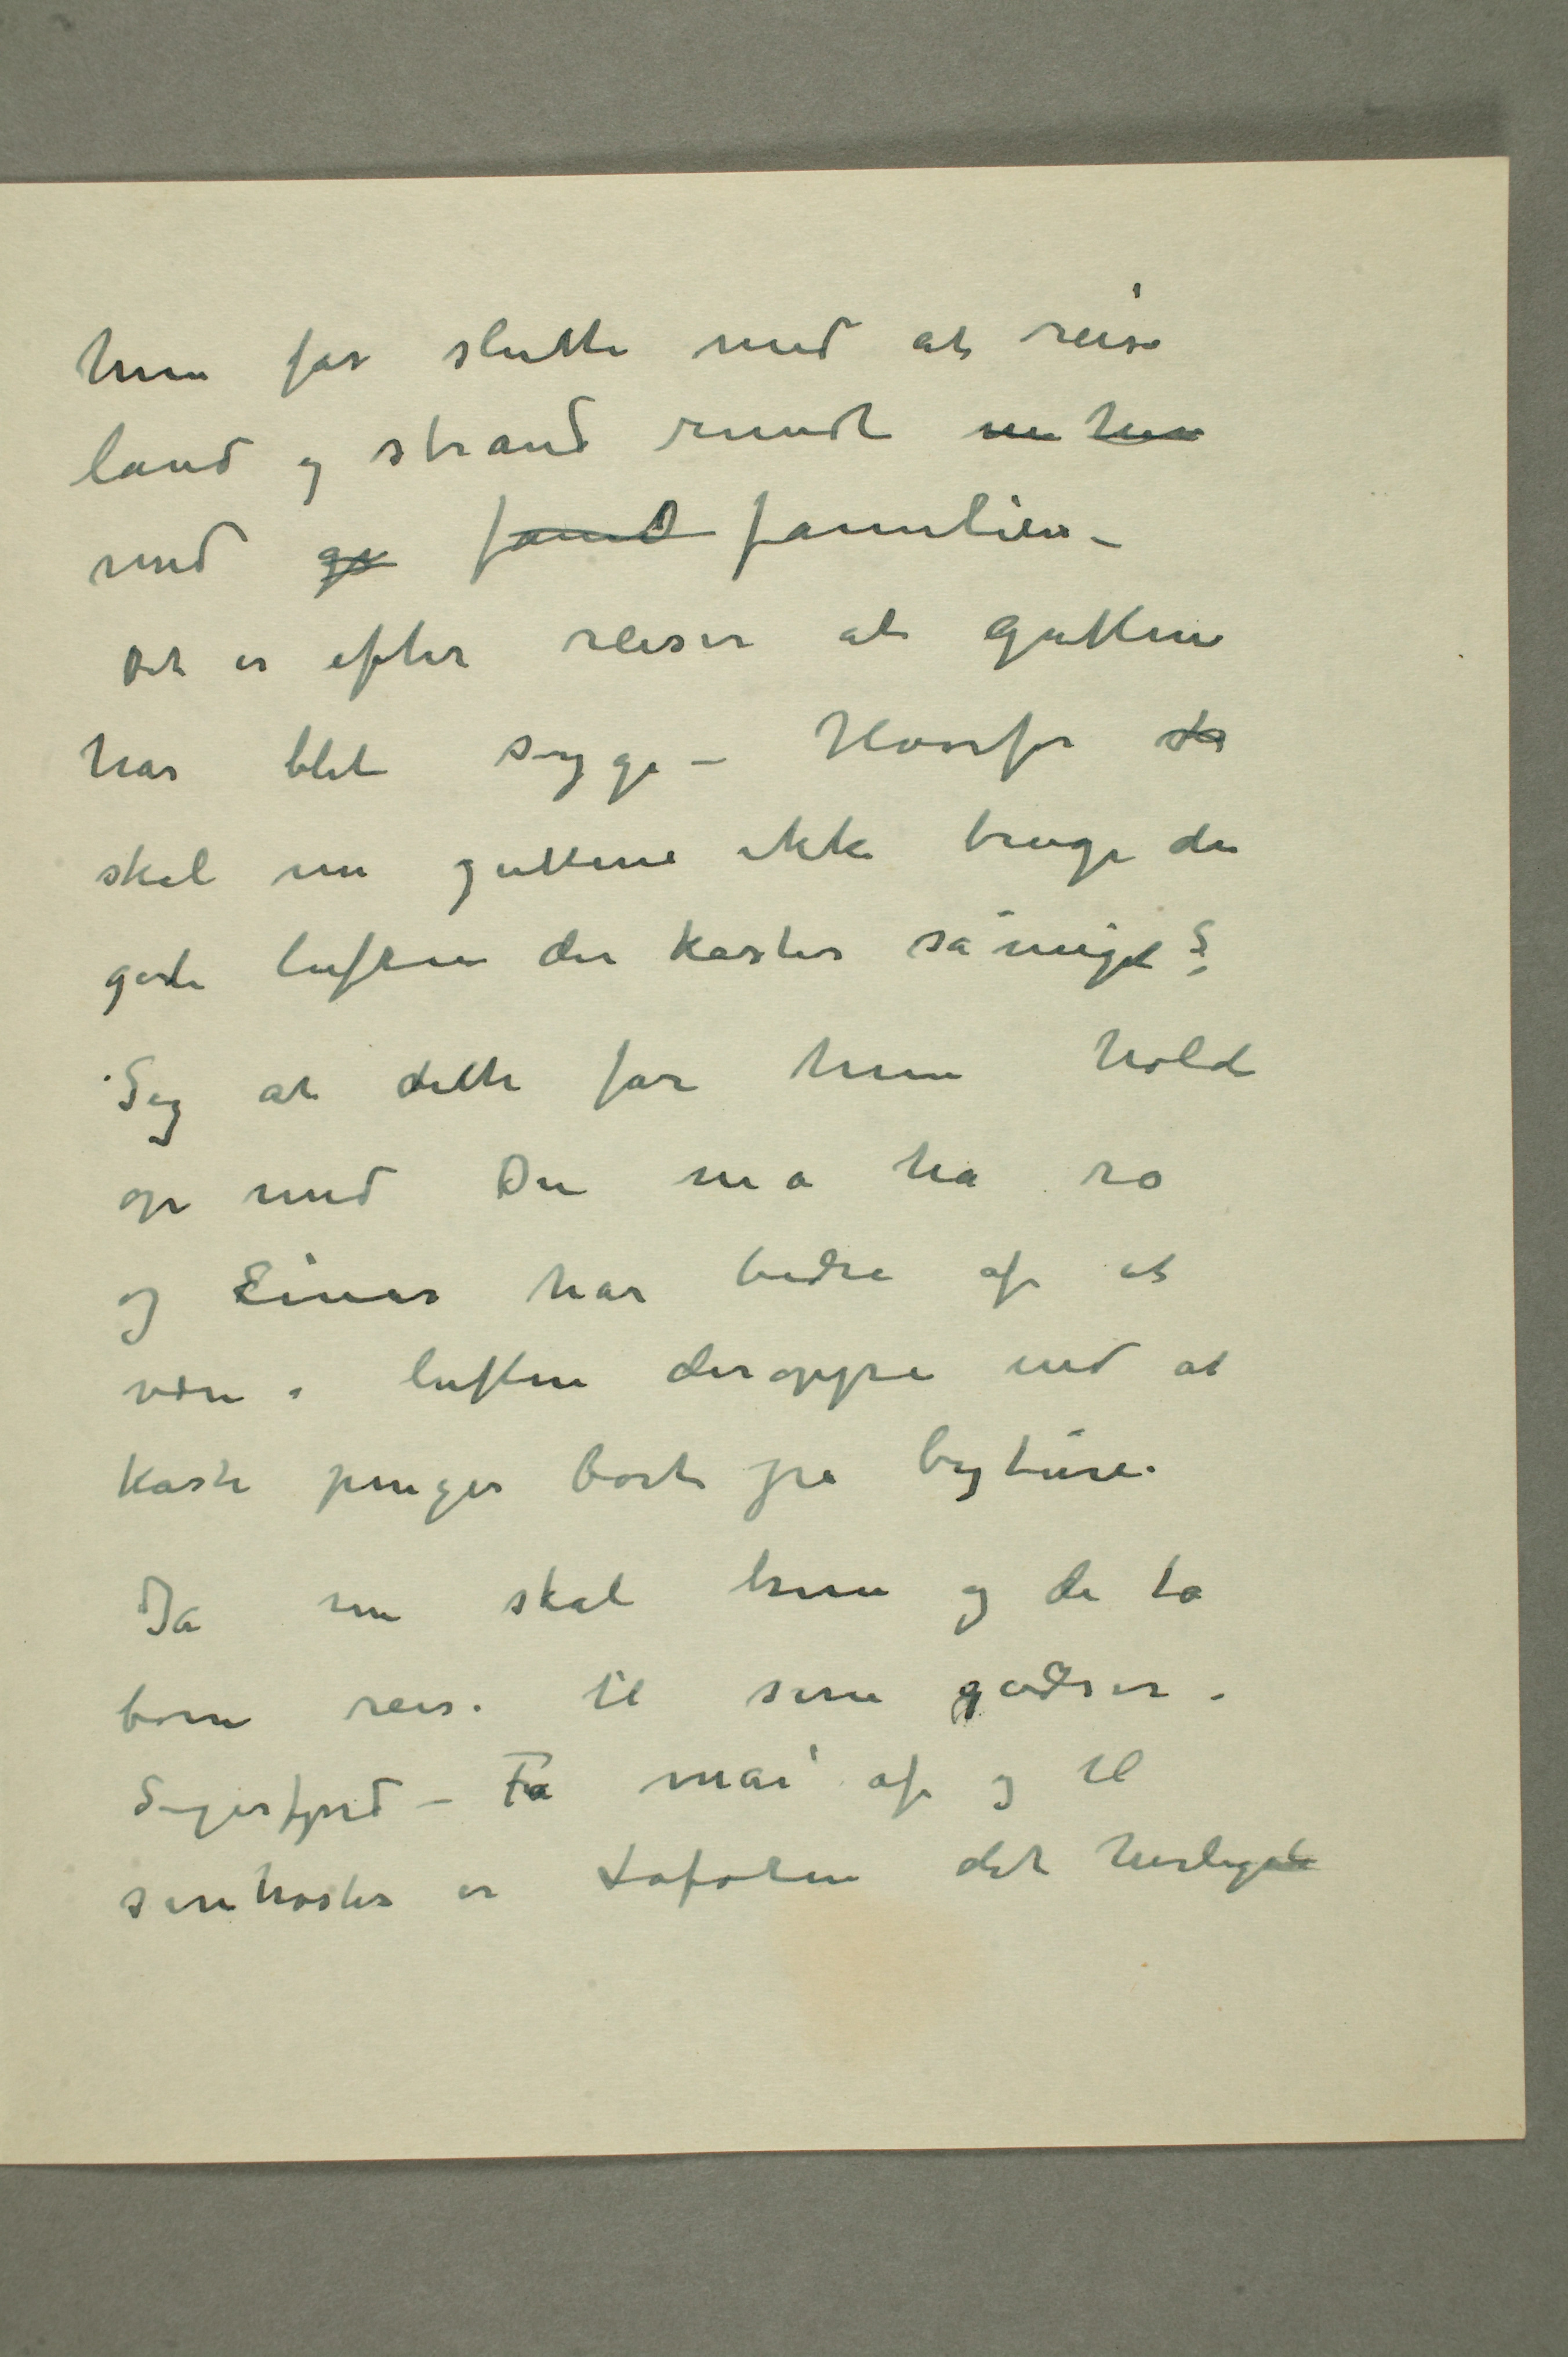 hun får slutte med at reise
land og strand rundt nu hun
med go famil familien –
Det er efter reiser at guttene
har blet syge – Hvorfor de
skal nu guttene ikke bruge den
gode luften der kaster så miget?
Sig at dette får hun holde
op med Du må ha ro
og Einar har bedre af at
være i luften deroppe end at
kaste penger bort på byture.
Ja nu skal hun og de to
børn reise til sine godser i
Sigerfjord – Fra mai af og til
senhøsten er Lofoten det herligste